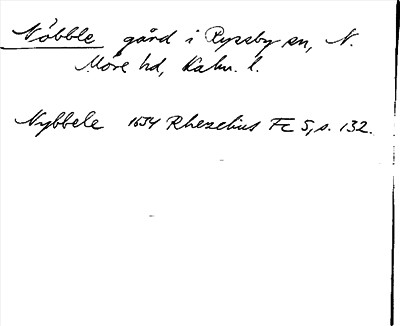 Nöbble gård i Ryssby sn, N.
Möre hd, Kalm. l.
Nybbele 1634 Rhezelius Fc 5, s. 132.